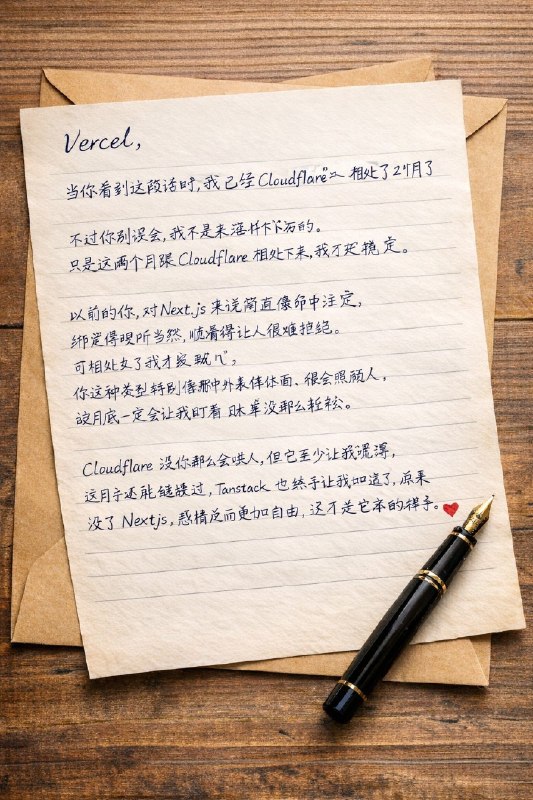 Vercel,
当你看到这段话时,我已经 Cloudflare 相处了2个月了
不过你别误会,我不是来
只是这两个月跟 Cloudflare 相处下来,我才 稳定。
以前的你,对 Next.js 来说简直像命中注定,
绑 得 所当然,顺 得让人很难拒绝。
可相处 了我才发现,
你这种类型特别像那中外表体面、很会照顾人,
月底一定会让我盯着 单没那么轻松。
Cloudflare 没你那么会哄人,但它至少让我觉得,
这月 还能继续过, Tanstack 也终于让我知道了,原来
没了 Nextjs,感情反而更加自由,这才是它 的样子。